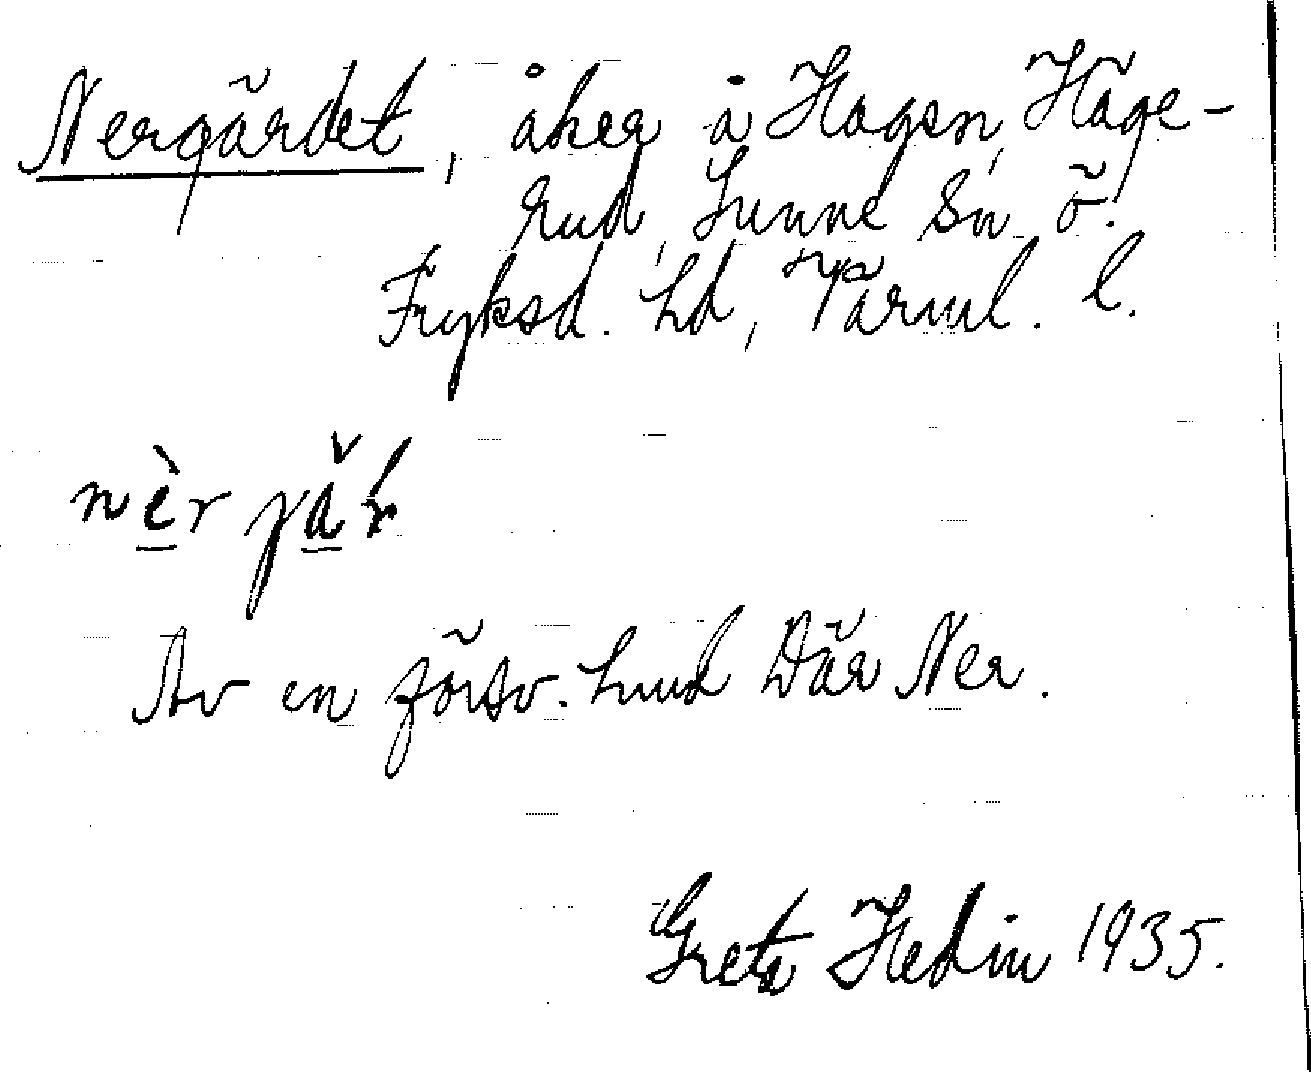 Nergärdet, åker å Hagen, Häge-
rud, Sunne Sn Ö.
Fryksd. hd, Värml. l.
nèr jä̌ɽ
Av en försv. hmd Där Ner.
Greta Hedin 1935.